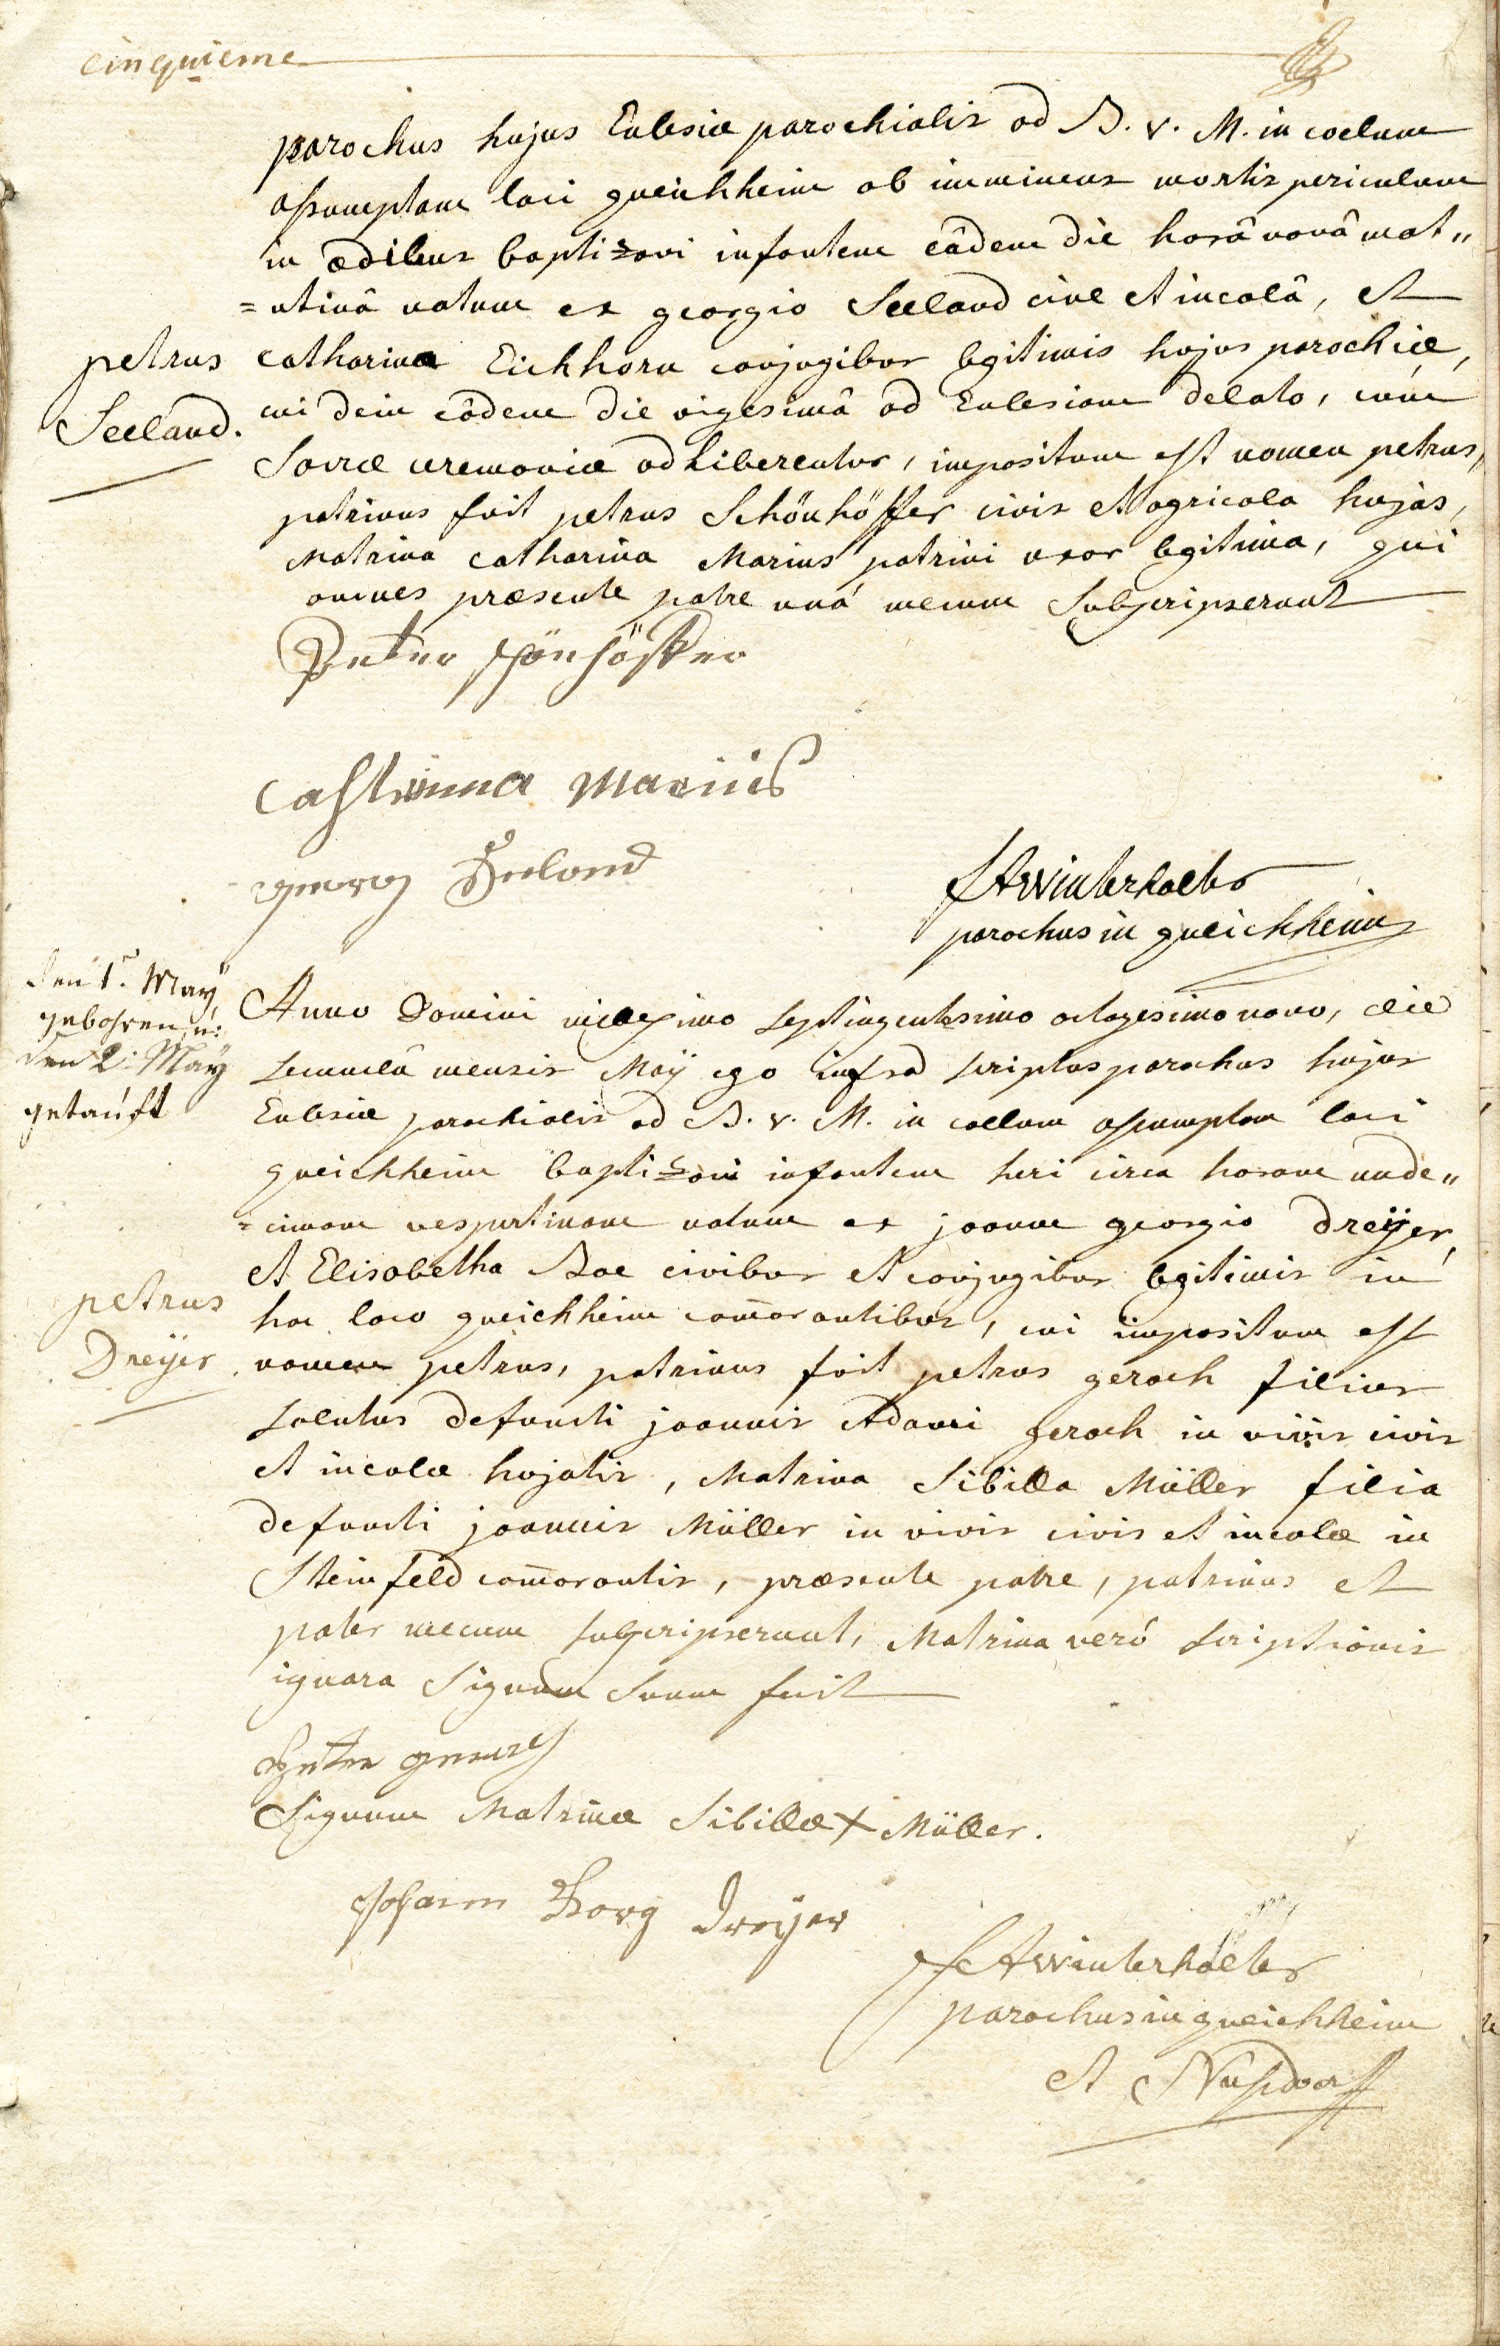 cinquieme
parochus hujus Eclesiæ parochialis ad B. v. M. in coelum
assumptam loci queichheim ob imminens mortis periculum
in ædibus baptizavi infantem eâdem die horâ nonâ mat„
=utinâ natum ex georgio Seeland cive et incolâ, et
petrus
Seeland.
catharina Eichhorn conjugibus legitimis hujus parochiæ,
cui dein eâdem die vigesimâ ad Eclesiam delato, cum
Sacræ ceremoniæ adhiberentur, impositum est nomen petrus,
patrinus fuit petrus Schönhöffer civis et agricola hujas,
Matrina catharina Marius patrini uxor legitima, qui
omnes præsente patre unà mecum subscripserunt
Peter schönhöffer
Catharina Mariis
georg Seeland
FAWinterholter
parochus in queichheim
den 1.ᵗ May
gebohren, u:
den 2: May
getauft
Anno Domini millesimo septingentesimo octogesimo nono, die
secundâ mensis Maÿ ego infra scriptus parochus hujus
Eclesiæ parochialis ad B. v. M. in coelum assumptam loci
queichheim baptizavi infantem heri circa horam unde„
=cimam vespertinam natum ex joanne georgio Dreÿer,
et Elisabetha Bae civibus et conjugibus legitimis in
petrus
Dreÿer
hoc loco queichheim com̄orantibus, cui impositum est
nomen petrus, patrinus fuit petrus gerach filius
solutus defuncti joannis Adami gerach in vivis civis
et incolæ hujatis, Matrina Sibilla Müller filia
defuncti joannis Müller in vivis civis et incolæ in
Steinfeld com̄orantis, præsente patre, patrinus et
pater mecum subscripserunt, Matrina verò scriptionis
ignara Signum suum fecit
Peter
Signum Matrinæ Sibillæ + Müller.
Johann Georg Dreÿer
FAWinterholter
parochus in queichheim
et Nusdorff